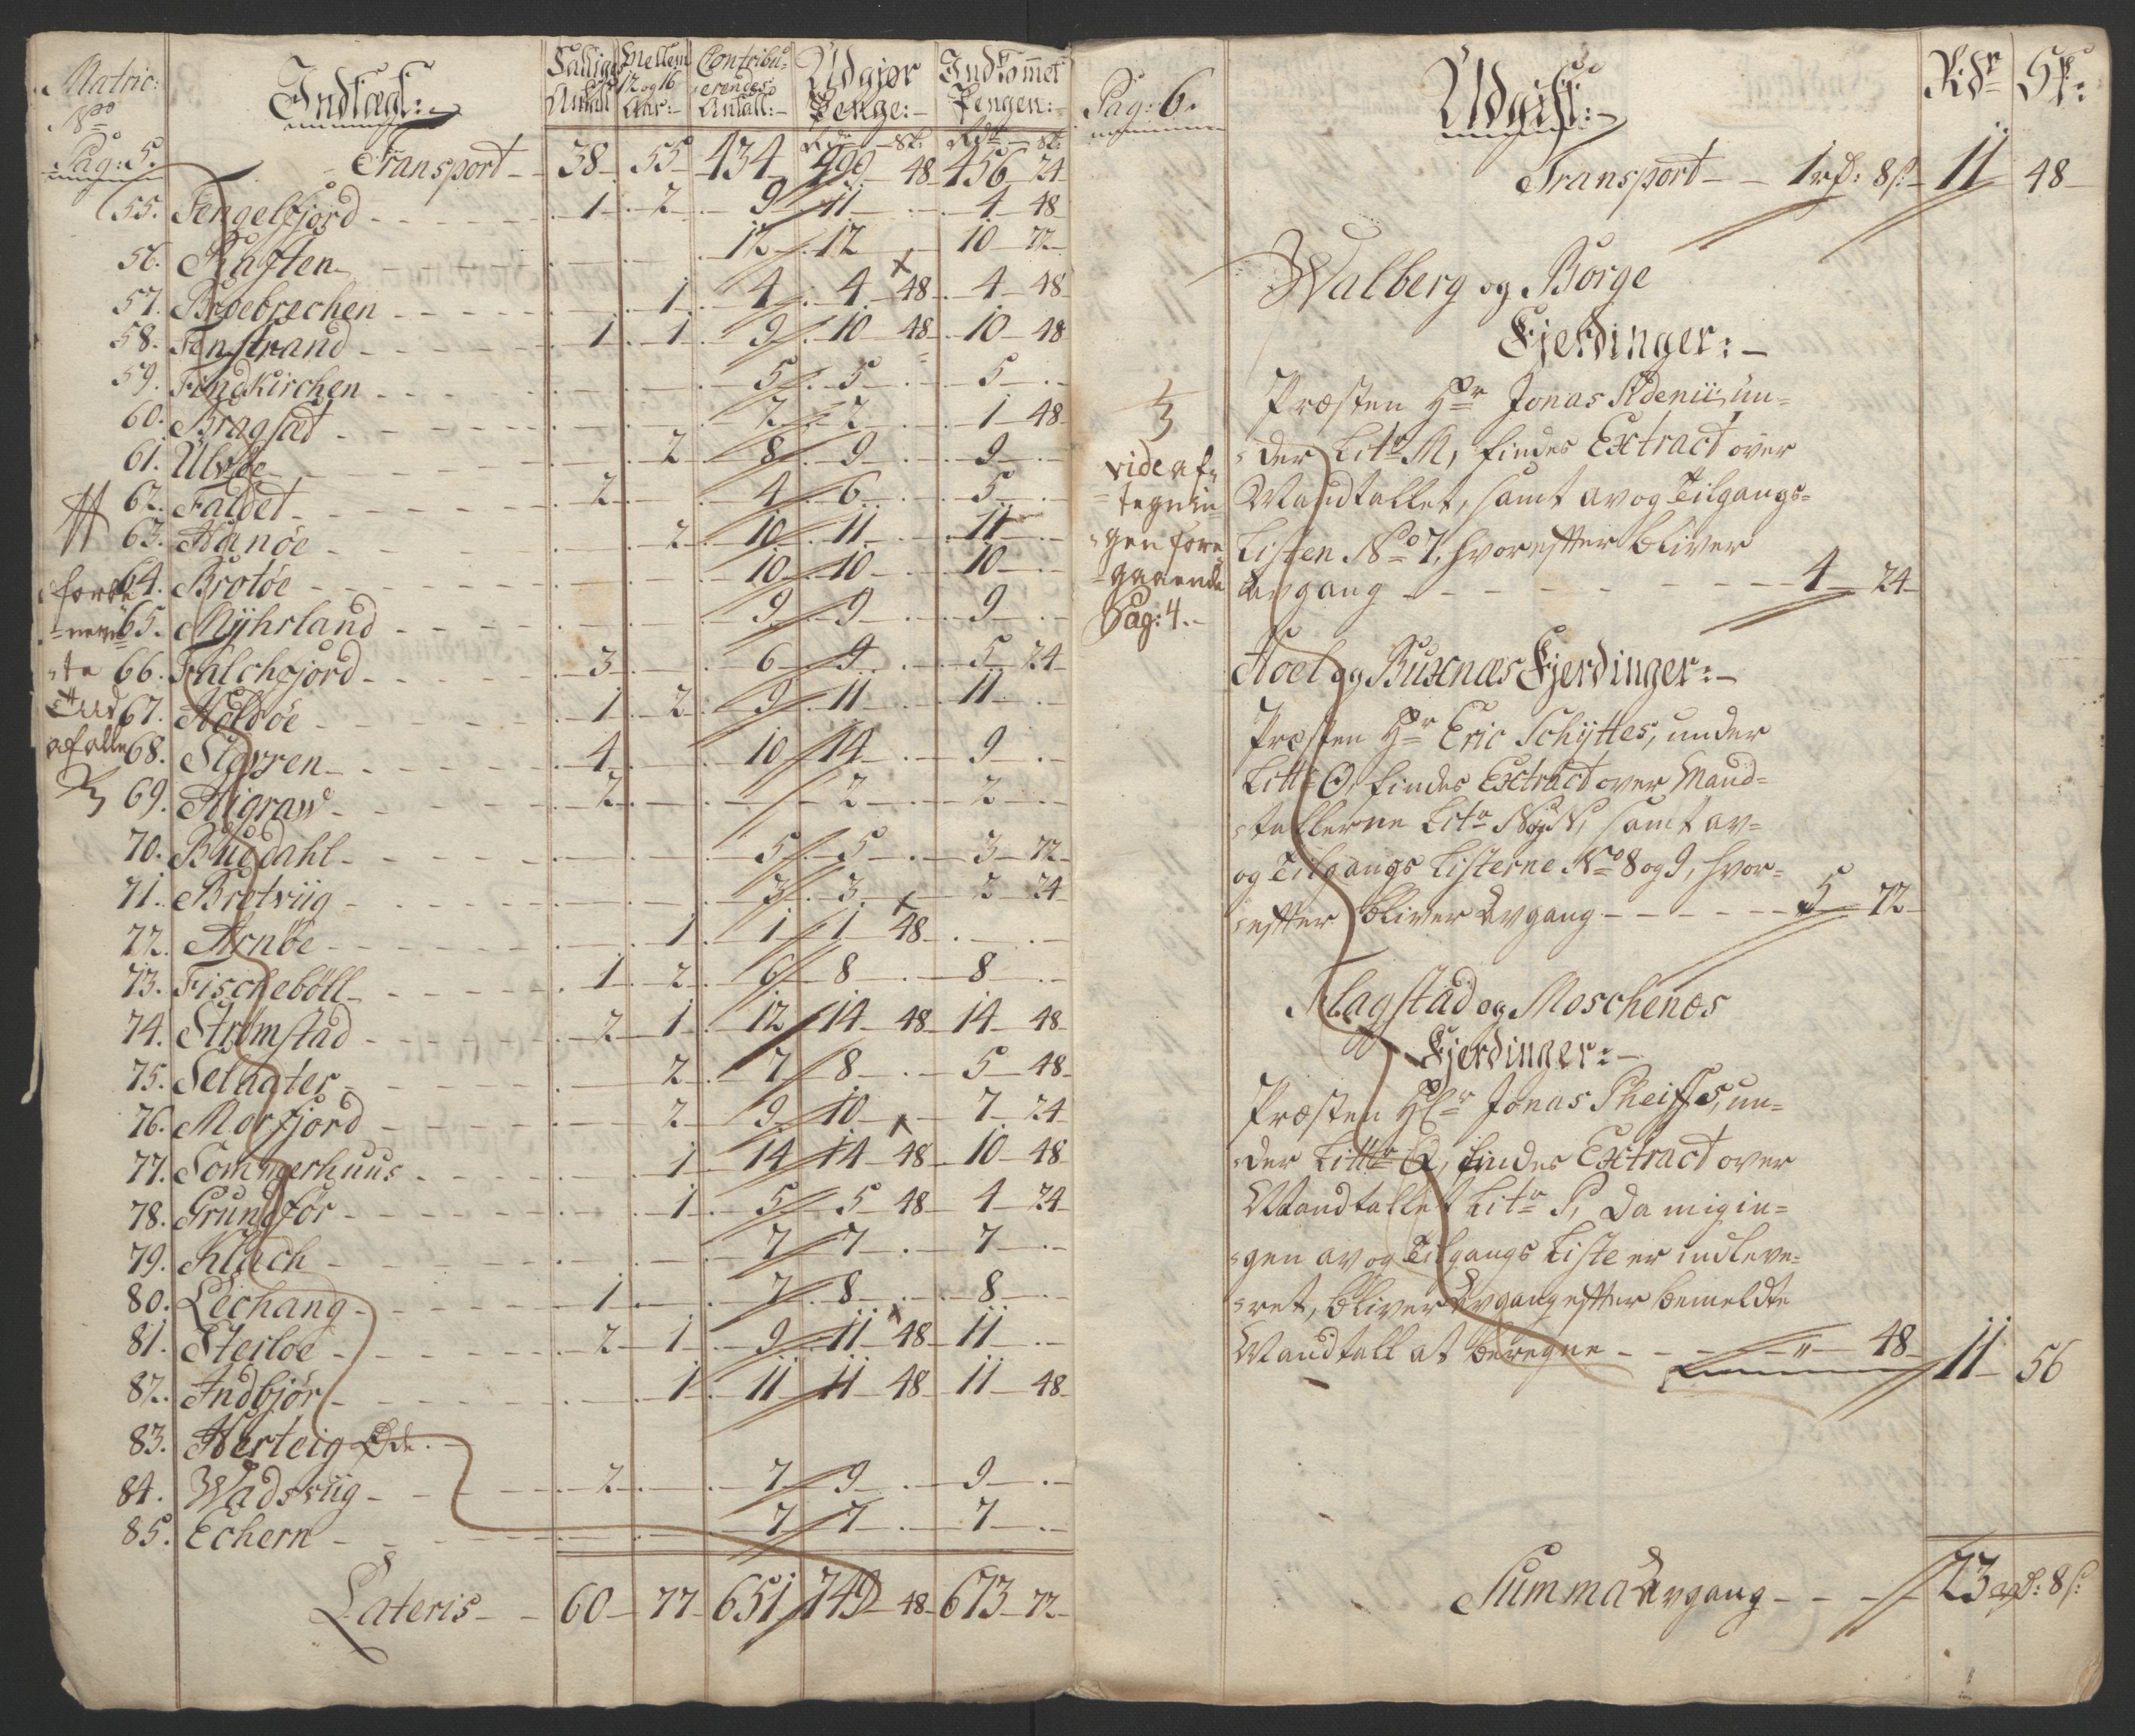 Matric: No
Indtægt:
Fattiges Antall
Mellem 12 og 16 Aar:
Contribuerendes Antall:
Udgiør Penge:
Indkommet Pengen:
Rdr Sk: Rdr Sk:
Pag: 5.
Transport 38 55 434 499 48 456 24
55. Tengelfjord 1 2 9 11 4 48
56. Raften 12 12 10 72
57. Broebrechen 1 4 4 48 4 48
58. Finstrand 1 1 9 10 48 10 48
59. Findkirchen 5 5 5
60. Bragstad 2 2 1 48
61. Ulvøe 2 8 9 9
62. Faldet 2 4 6 5
63. Hanøe 2 10 11 11
64. Brotøe 10 10 10
65. Myhrland 9 9 9
66. Falchfjord 3 6 9 5 24
67. Holdøe 1 2 9 11 11
68. Støvren 4 10 14 9
69. Higraw 2 2 2
70. Budahl 5 5 3 72
71. Brotviig 3 3 2 24
72. Arnøe 1 1 1 48
73. Fischebøll 1 2 6 8 8
74. Strømstad 2 1 12 14 48 14 48
75. Selnater 2 7 8 5 48
76. Morfjord 2 9 10 7 24
77. Sommerhuus 1 14 14 48 10 48
78. Grundfør 1 5 5 48 4 24
79. Klach 7 7 7
80. Lechang 1 7 8 8
81. Sterløe 2 1 9 11 48 11
82. Indbjør 1 11 11 48 11 48
83. Herteig Øde.
84. Wadsviig 2 7 9 9
85. Echern 7 7 7
Lateris 60 77 651 749 48 673 72
Pag: 6.
Udgift:
Rdr Sk:
Transport 1 rd: 8 s: 11 48
Walberg og Borge
Fjerdinger:
Præsten Hr Jonas Adenii, un=
der Litr M, findes Extract over
Mandtallet, samt av og Tilgangs=
Listen No 7, hvorefter bliver
Avgang 4 24
vide af=
tegnin=
gen fore
gaaende
Pag: 4.
Hoel og Buxnæs Fjerdinger:
Præsten Hr Eric Schyttes, under
Littr O, findes Extract over Mand=
tallerne Litr N og N, samt av=
og Tilgangs Listerne No 8 og 9, hvor=
efter bliver Avgang 5 72
Flagstad og Moschenæs
Fjerdinger:
Præsten Hr Jonas Pheiffs, un=
der Littr Q, findes Extract over
Mandtallet Litr P, da mig in=
gen av og Tilgangs Liste er indleve=
ret, bliver Avgang efter bemeldte
Mandtall at beregne " 48 11 56
Summa Avgang 23 rd: 8 s: